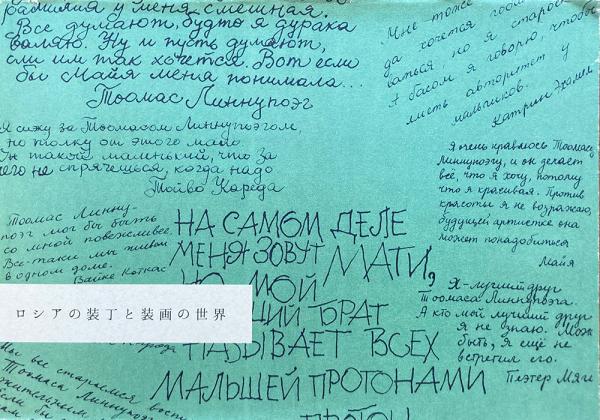 фамилия у меня смешная.
Все думают, будто я дурака
валяю. Ну и пусть думают,
если им так хочется. Вот если
бы Майя меня понимала...
Тоомас Линнупоэг
Мне тоже
да хочется
но я
А басом я говорю, чтобы
авторитет у
мальчиков.
Катрин
Я сижу за Тоомасом Линнупоэгом,
но толку от этого мало
Он такой маленький, что за
него не спрячешься, когда надо
Тойво Кареда
Я очень нравлюсь Тоомасу
Линнупоэгу, и он делает
всё, что я хочу, потому
что я красивая. Против
красоты я не возражаю,
будущей артистке она
может понадобиться
Майя
Тоомас Линну-
поэг мог бы быть
со мной повежливее.
Все-таки мы живем
в одном доме.
Вайке Коткас
НА САМОМ ДЕЛЕ
МЕНЯ ЗОВУТ МАТИ,
НО МОЙ
БРАТ
НАЗЫВАЕТ ВСЕХ
МАЛЬШЕЙ ПРОТОНАМИ
ПРОТОН
Я-лучший друг
Тоомаса Линнупоэга.
А кто мой лучший друг
я не знаю. Мож
быть, я ещё не
встретил его.
Пеэтер Мяги
ロシアの装丁と装画の世界
Мы все стараемся
Тоомаса